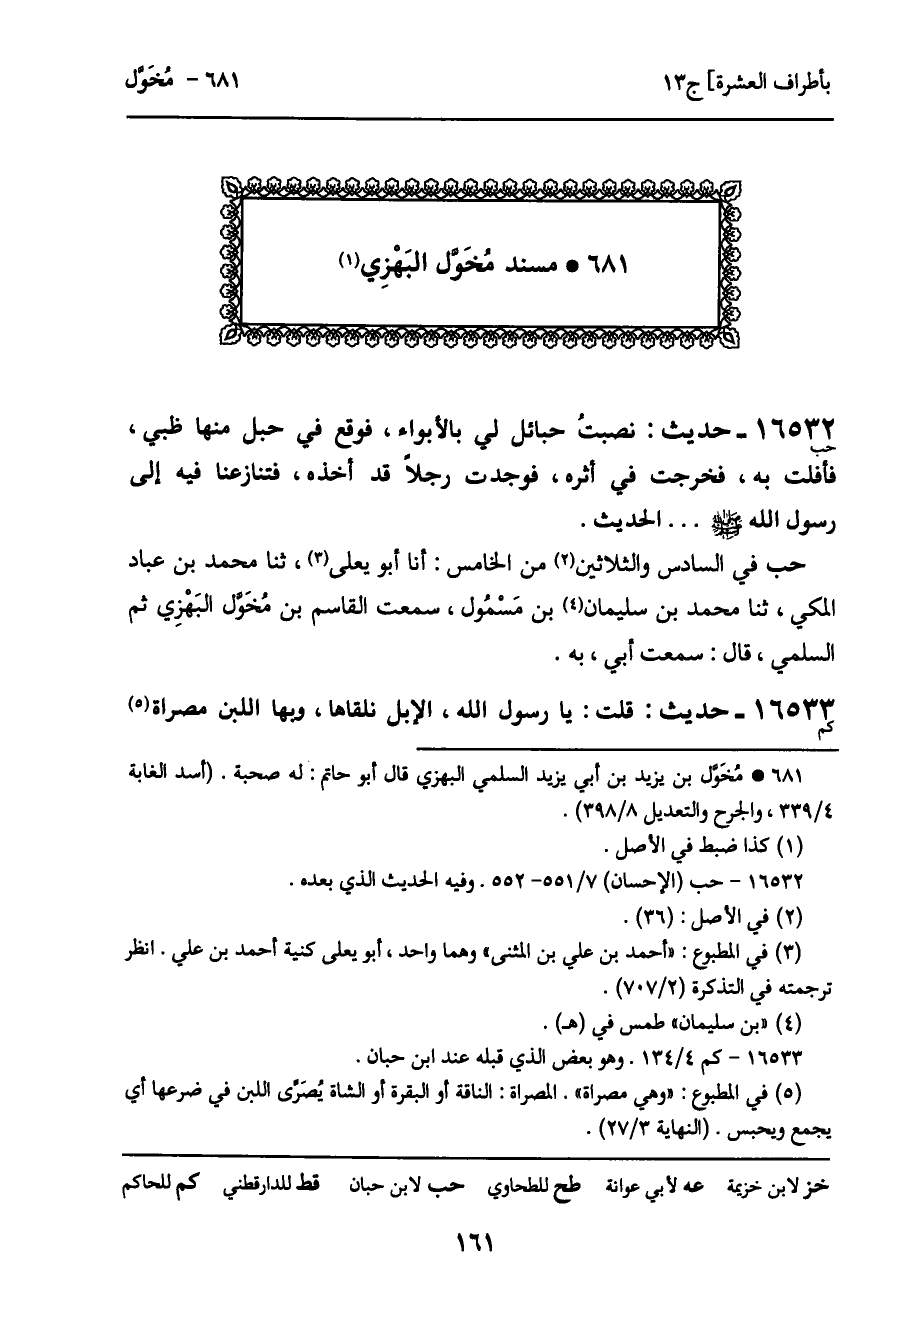 بأطراف العشرة] ج١٣
٦٨١ - مُخَوَّل
٦٨١ ● مسند مُخَوَّل البَهْزِي(١)
١٦٥٣٢ - حديث : نصبتُ حبائل لي بالأبواء ، فوقع في حبل منها ظبي ،
حب
فأفلت به ، فخرجت في أثره ، فوجدت رجلاً قد أخذه ، فتنازعنا فيه إلى
رسول الله ﷺ . . . الحديث .
حب في السادس والثلاثين(٢) من الخامس : أنا أبو يعلى(٣) ، ثنا محمد بن عباد
المكي ، ثنا محمد بن سليمان(٤) بن مَسْمُول ، سمعت القاسم بن مُخَوَّل البَهْزِي ثم
السلمي ، قال : سمعت أبي ، به .
١٦٥٣٣ - حديث : قلت : يا رسول الله ، الإبل نلقاها ، وبها اللبن مصراة(٥)
كم
٦٨١ ● مُخَوَّل بن يزيد بن أبي يزيد السلمي البهزي قال أبو حاتم : له صحبة . (أسد الغابة
٣٣٩/٤ ، والجرح والتعديل ٣٩٨/٨) .
(١) كذا ضبط في الأصل .
١٦٥٣٢ - حب (الإحسان) ٥٥١/٧- ٥٥٢ . وفيه الحديث الذي بعده .
(٢) في الأصل : (٣٦) .
(٣) في المطبوع : «أحمد بن علي بن المثنى» وهما واحد ، أبو يعلى كنية أحمد بن علي . انظر
ترجمته في التذكرة (٧٠٧/٢) .
(٤) «بن سليمان» طمس في (هـ) .
١٦٥٣٣ - كم ١٣٤/٤ . وهو بعض الذي قبله عند ابن حبان .
(٥) في المطبوع : «وهي مصراة» . المصراة : الناقة أو البقرة أو الشاة يُصَرَّى اللبن في ضرعها أي
يجمع ويحبس . (النهاية ٢٧/٣) .
خز لابن خزيمة عه لأبي عوانة طح للطحاوي حب لابن حبان قط للدارقطني كم للحاكم
١٦١